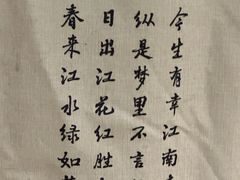 今生有幸江南
纵是梦里不言
日出江花红胜
春来江水绿如